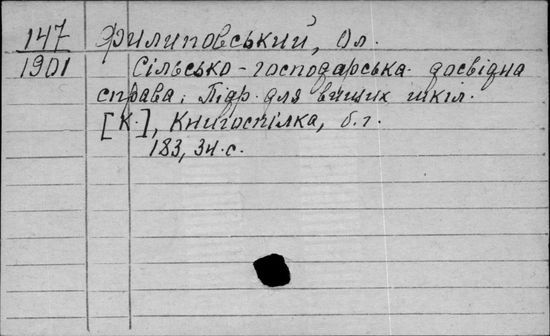 147 Филиповський, Ол.
1901 Сільсько-господарська досвідна
справа. Підр. для вищих шкіл.
[К.], Книгоспілка, б. г.
183, 34 с.